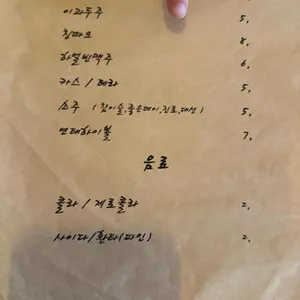 이과두주 5,
칭따오 8,
하얼빈맥주 6,
카스 / 테라 5,
소주 (참이슬,좋은데이,진로,대선) 5,
연태하이볼 7,
음료
콜라 / 제로콜라 2,
사이다/환타(파인) 2,